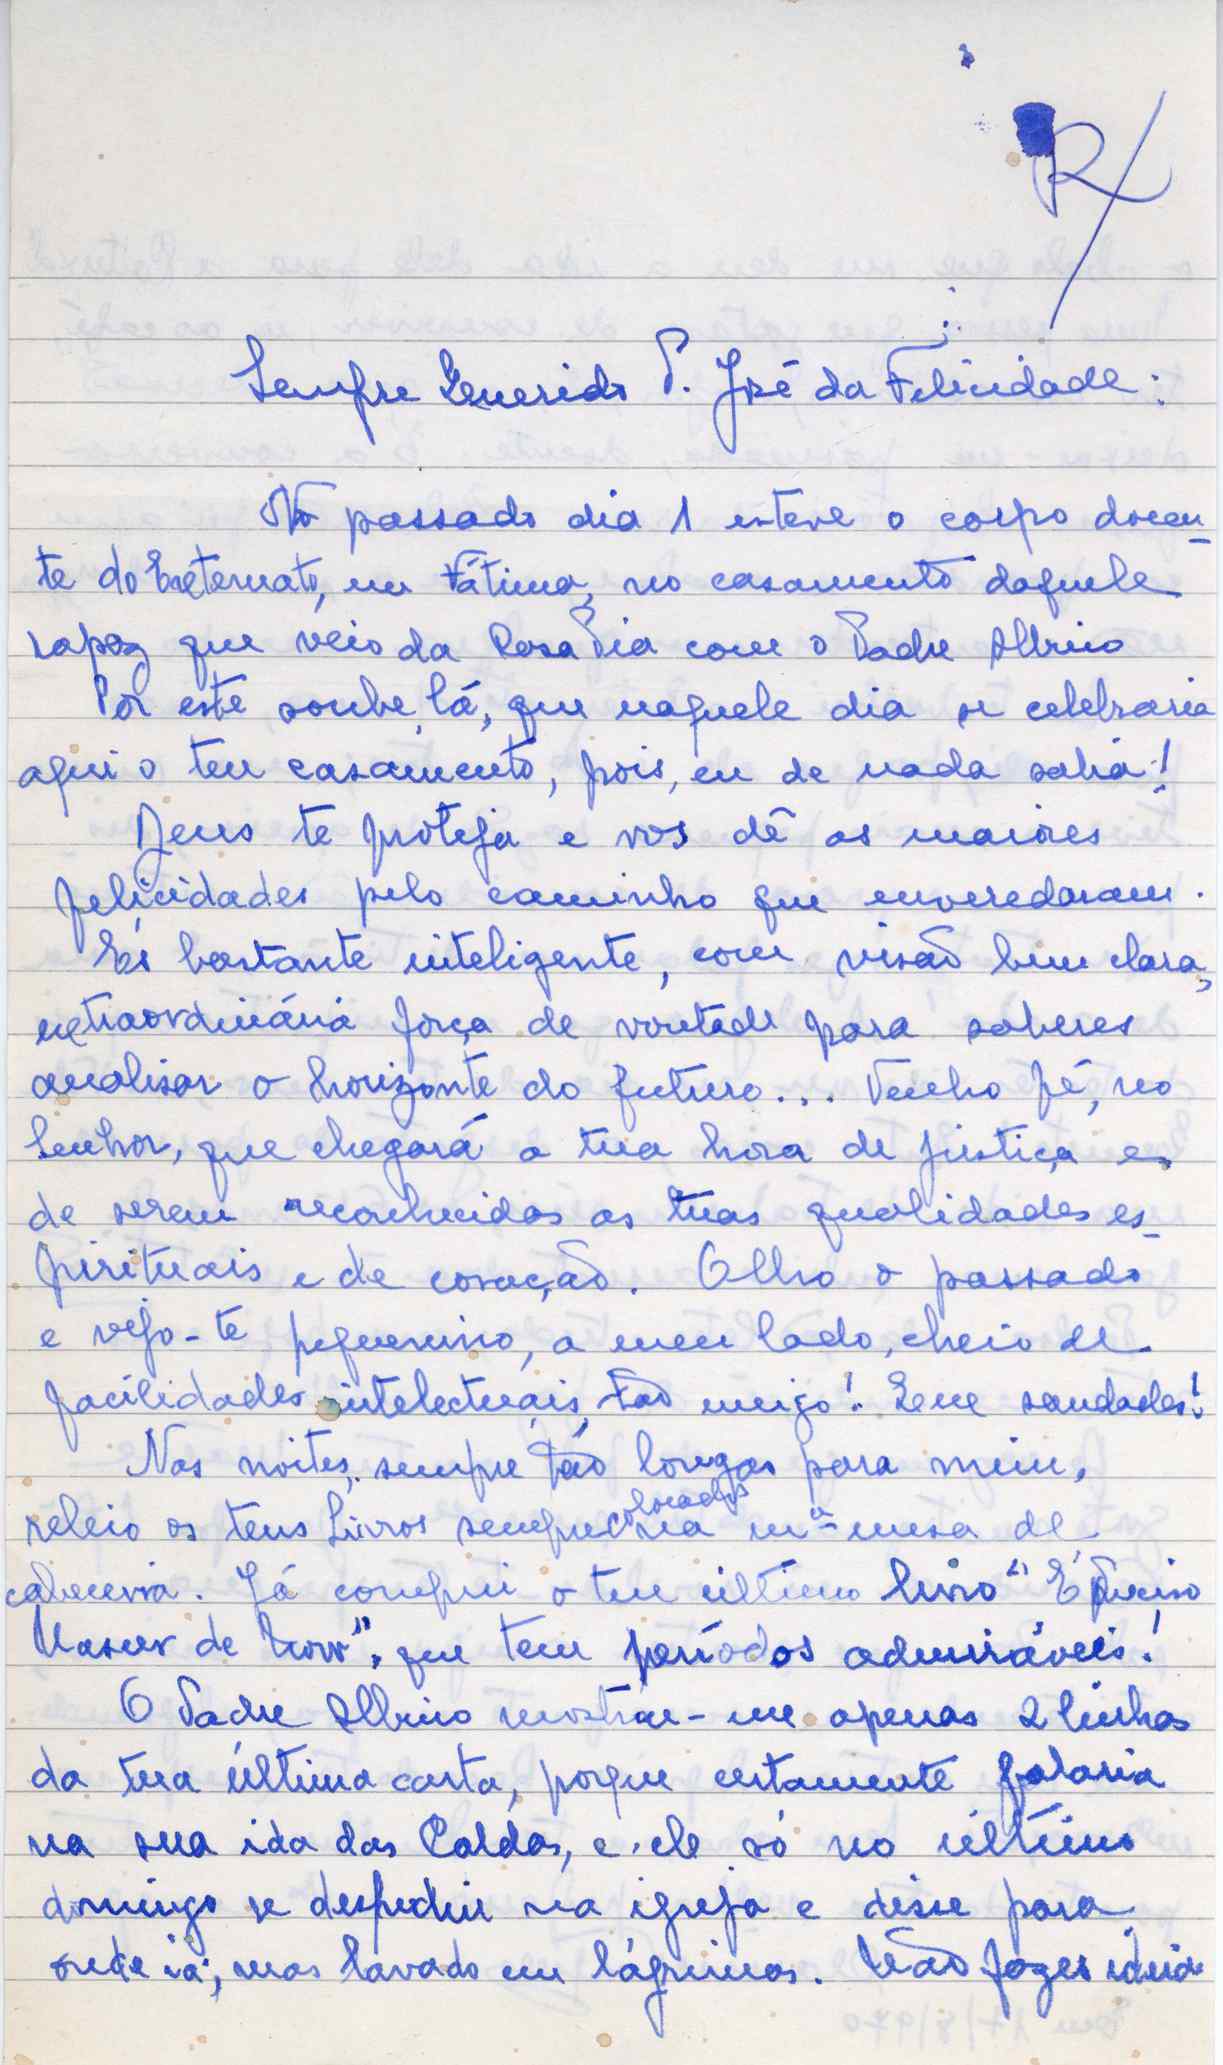 R
Sempre Querido P. José da Felicidade:
No passado dia 1 esteve o corpo docen-
te do Externato, em Fátima, no casamento daquele
rapaz que veio da Casa Pia com o Padre Albino
Por este soube, lá, que naquele dia se celebraria
aqui o teu casamento, pois, eu de nada sabia!
Deus te proteja e vos dê as maiores
felicidades pelo caminho que enveredaram.
És bastante inteligente, com visão bem clara,
extraordinária força de vontade para saberes
analisar o horizonte do futuro... Tenho fé, no
Senhor, que chegará a tua hora de justiça e
de serem reconhecidas as tuas qualidades es-
pirituais e de coração. Olho o passado
e vejo-te pequenino, a meu lado, cheio de
facilidades intelectuais, tão meigo! Que saudades!
Nas noites, sempre tão longas para mim,
releio os teus livros sempre colocados na mª mesa de
cabeceira. Já comprei o teu último livro "É Preciso
Nascer de Novo", que tem períodos admiráveis!
O Padre Albino mostrou-me apenas 2 linhas
da tua última carta, porque certamente falaria
na sua ida das Caldas, e ele só no último
domingo se despediu na igreja e disse para
onde ia, mas lavado em lágrimas. Não fazes ideia